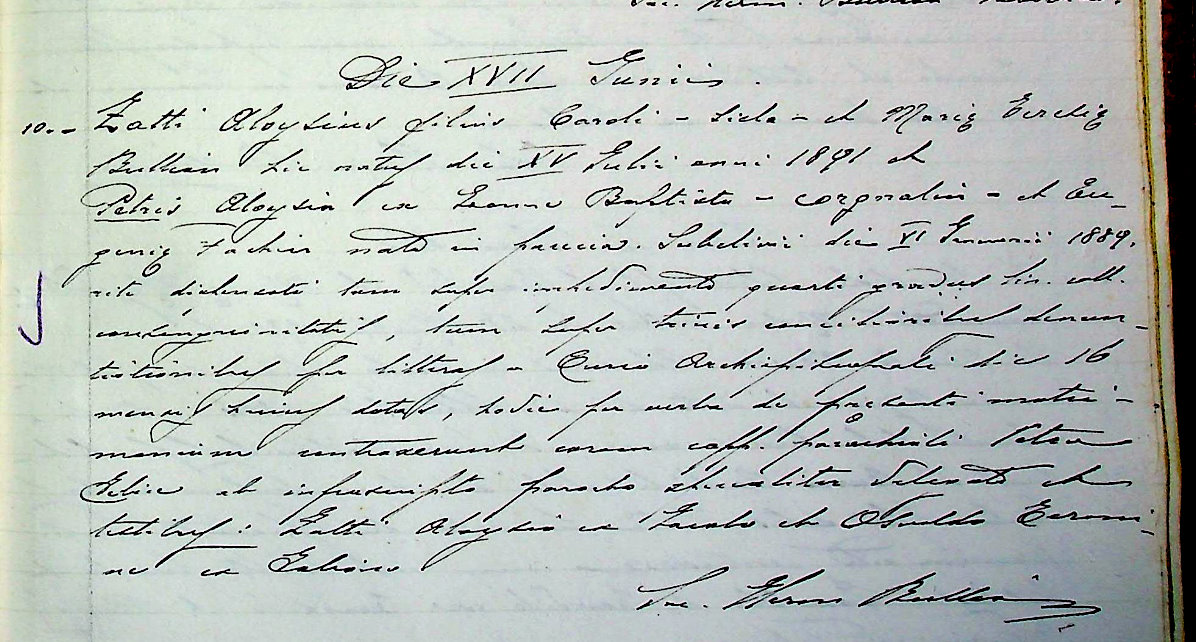 Die XVII Junii.
10. - Zatti Aloysius filius Caroli - Sicla - et Mariæ Verdiæ
Bullian hic natus die XV Julii anni 1891 et
Petris Aloysia ex Joanne Baptista - corgnalin - et Eu-
geniæ Fachin nata in paroecia Subclivii die VI Januarii 1889,
rite dispensati tam super impedimento quarti gradus lin. coll.
consanguinitatis, tam super trinis conciliaribus denun-
tiationibus per litteras a Curia Archiepiscopali die 16
mensis hujus datas, hodie per verba de præsenti matri-
monium contraxerunt coram capp. parochiali Petro
Felice ab infrascripto parocho specialiter delegato et
testibus: Zatti Aloysio ex Jacobo et Osualdo Toroni-
ne ex
Sac. Herm. Bullian